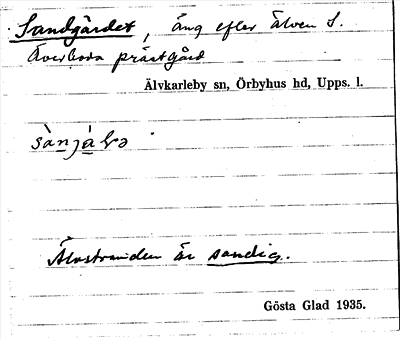 Sandgärdet, äng efter älven S.
Överboda prästgård
Älvkarleby sn, Örbyhus hd, Upps. l.
Älvstranden är sandig.
Gösta Glad 1935.